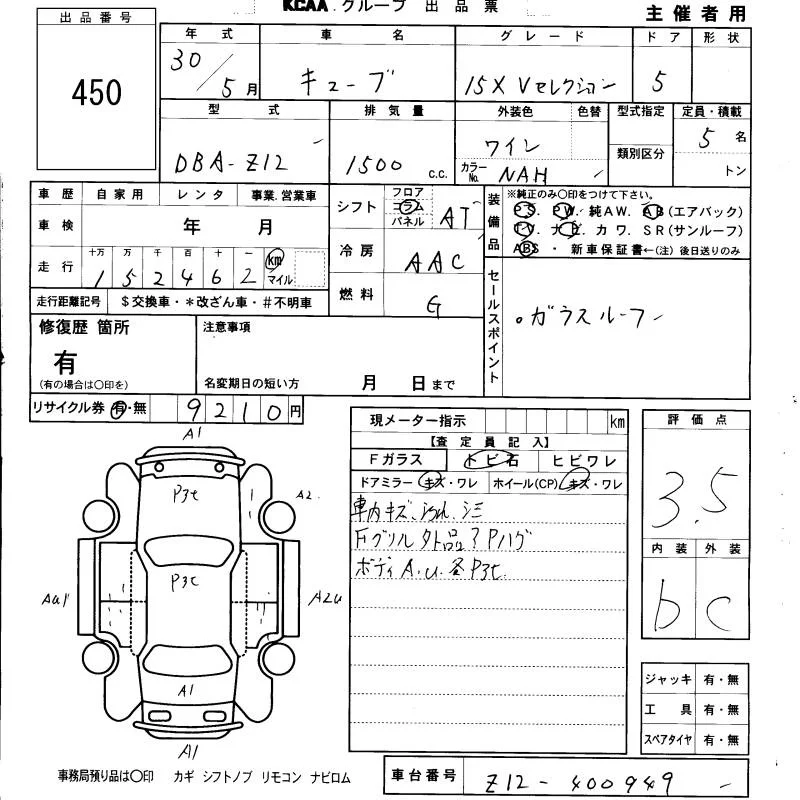 KCAA グループ 出品票
主催者用
出品番号
450
年式 車名 グレード ドア 形状
30/5月 キューブ 15X Vセレクション 5
型式 排気量 外装色 色替 型式指定 定員・積載
DBA-Z12 1500 C.C. ワイン 類別区分 5名
カラーNo. NAH トン
車歴 自家用 レンタ 事業.営業車
車検 年 月
走行 十万 万 千 百 十 一 km マイル
152462
走行距離記号 $交換車・*改ざん車・#不明車
シフト フロア コラム パネル AT
冷房 AAC
燃料 G
装備品 ※純正のみ〇印をつけて下さい。
PS. PW. 純AW. AB(エアバック)
TV. ナビ. カワ. SR(サンルーフ)
ABS ・ 新車保証書←(注) 後日送りのみ
セールスポイント
。ガラスルーフ
修復歴 箇所
有
(有の場合は〇印を)
注意事項
名変期日の短い方 月 日まで
リサイクル券 有・無 9210円
現メーター指示 km
【査定員記入】
Fガラス トビ石 ヒビワレ
ドアミラー キズ・ワレ ホイール(CP) キズ・ワレ
車内キズ、汚れ、シミ
Fグリル外品? Pハゲ
ボディA.U.各P3t.
評価点
3.5
内装 外装
b c
ジャッキ 有・無
工具 有・無
スペアタイヤ 有・無
A1
P3t
A2
P3t
AU1
A2U
A1
A1
事務局預り品は〇印 カギ シフトノブ リモコン ナビロム
車台番号 Z12-400949